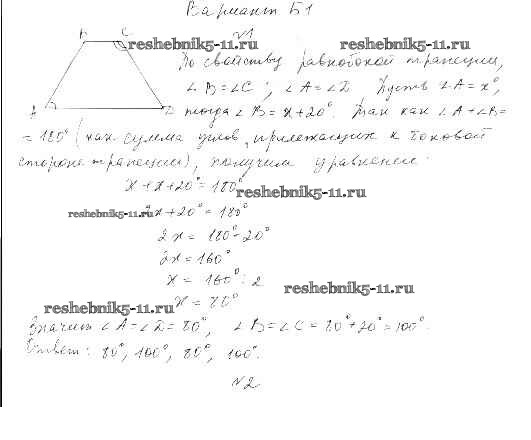 Вариант Б1
№1
B C
reshebnik5-11.ru reshebnik5-11.ru
По свойству равнобокой трапеции,
∠B=∠C; ∠A=∠D Пусть ∠A=x°,
A D тогда ∠B=x+20°. Так как ∠A+∠B=
=180° (как сумма углов, прилежащих к боковой
стороне трапеции), получим уравнение:
x+x+20°=180°
reshebnik5-11.ru
reshebnik5-11.ru 2x+20°=180°
2x=180°-20°
2x=160°
x=160°:2
reshebnik5-11.ru
x=80°
reshebnik5-11.ru
Значит ∠A=∠D=80°, ∠B=∠C=80°+20°=100°.
Ответ: 80°, 100°, 80°, 100°.
№2